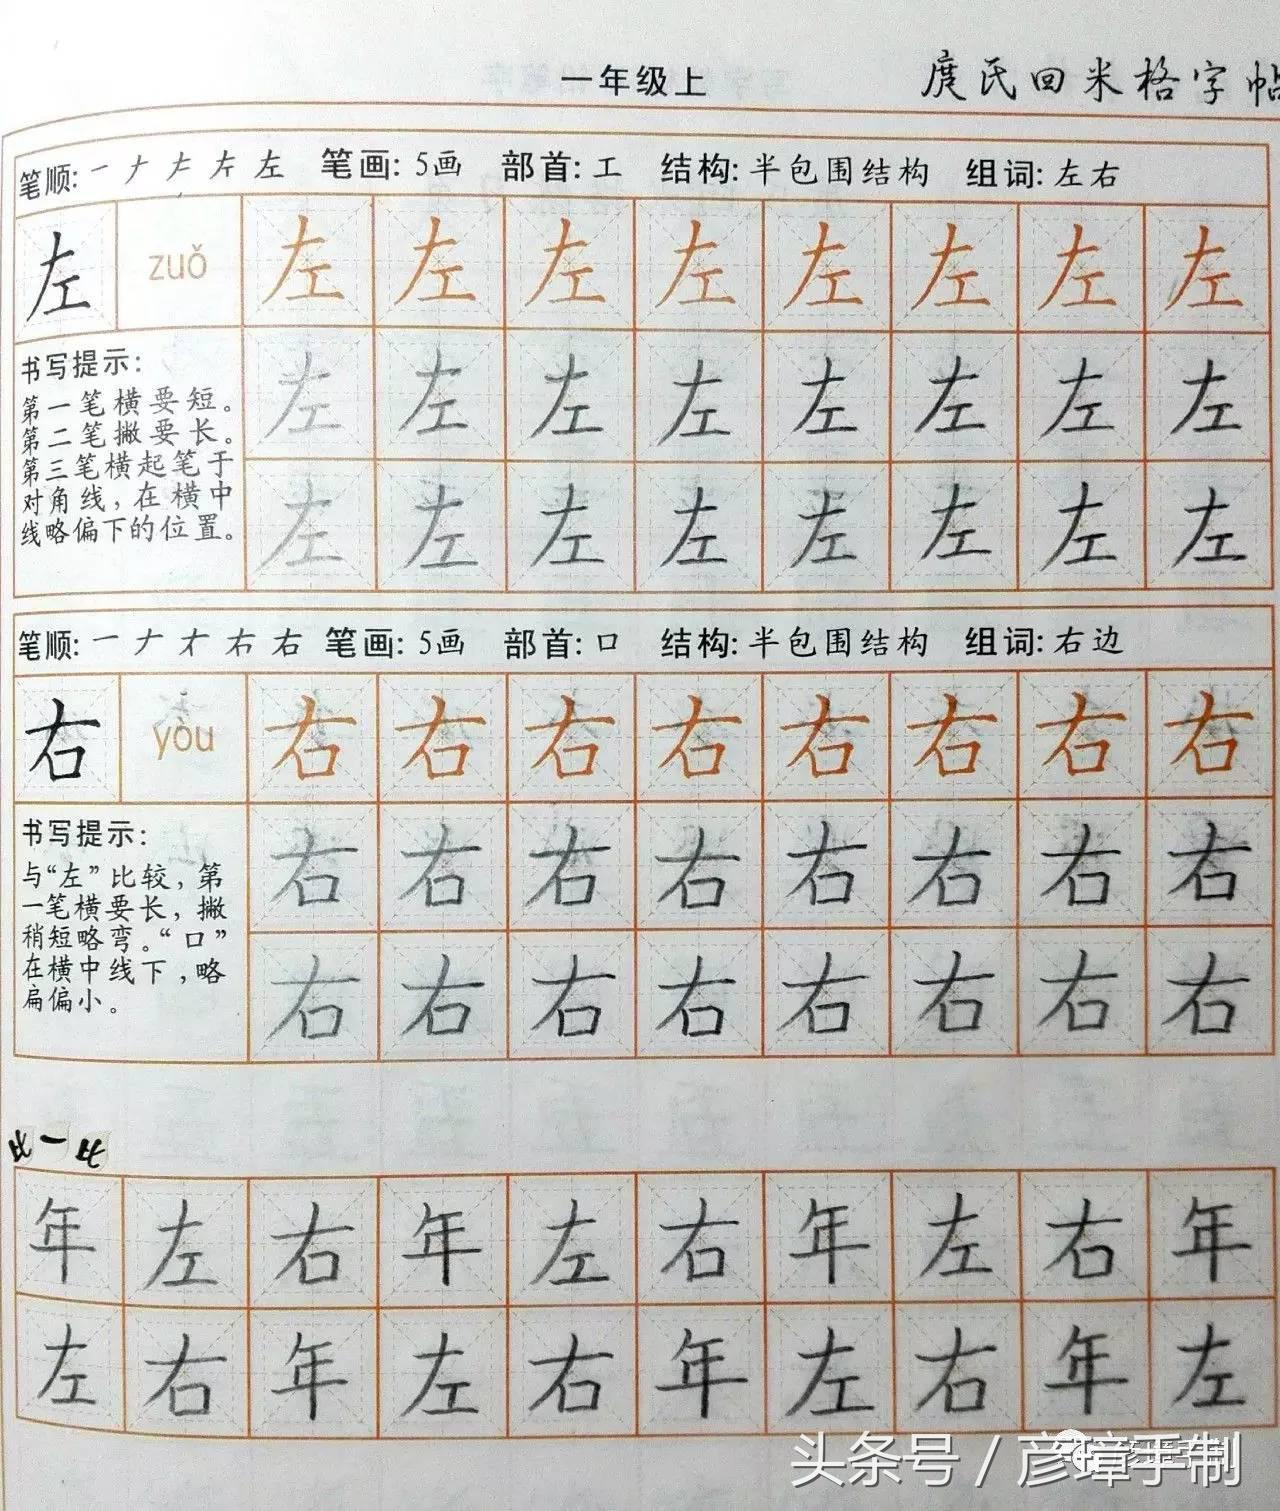 一年级上
庹氏回米格字帖
笔顺: 一 ナ 𠂇 左 左 笔画: 5画 部首: 工 结构: 半包围结构 组词: 左右
左 zuǒ 左 左 左 左 左 左 左 左
书写提示:
第一笔横要短。
第二笔撇要长。
第三笔横起笔于
对角线，在横中
线略偏下的位置。
左 左 左 左 左 左 左 左
左 左 左 左 左 左 左 左
笔顺: 一 ナ 才 右 右 笔画: 5画 部首: 口 结构: 半包围结构 组词: 右边
右 yòu 右 右 右 右 右 右 右 右
书写提示:
与“左”比较，第
一笔横要长，撇
稍短略弯。“口”
在横中线下，略
扁偏小。
右 右 右 右 右 右 右 右
右 右 右 右 右 右 右 右
比一比
年 左 右 年 左 右 年 左 右 年
左 右 年 左 右 年 左 右 年 左
头条号 / 彦璋手制